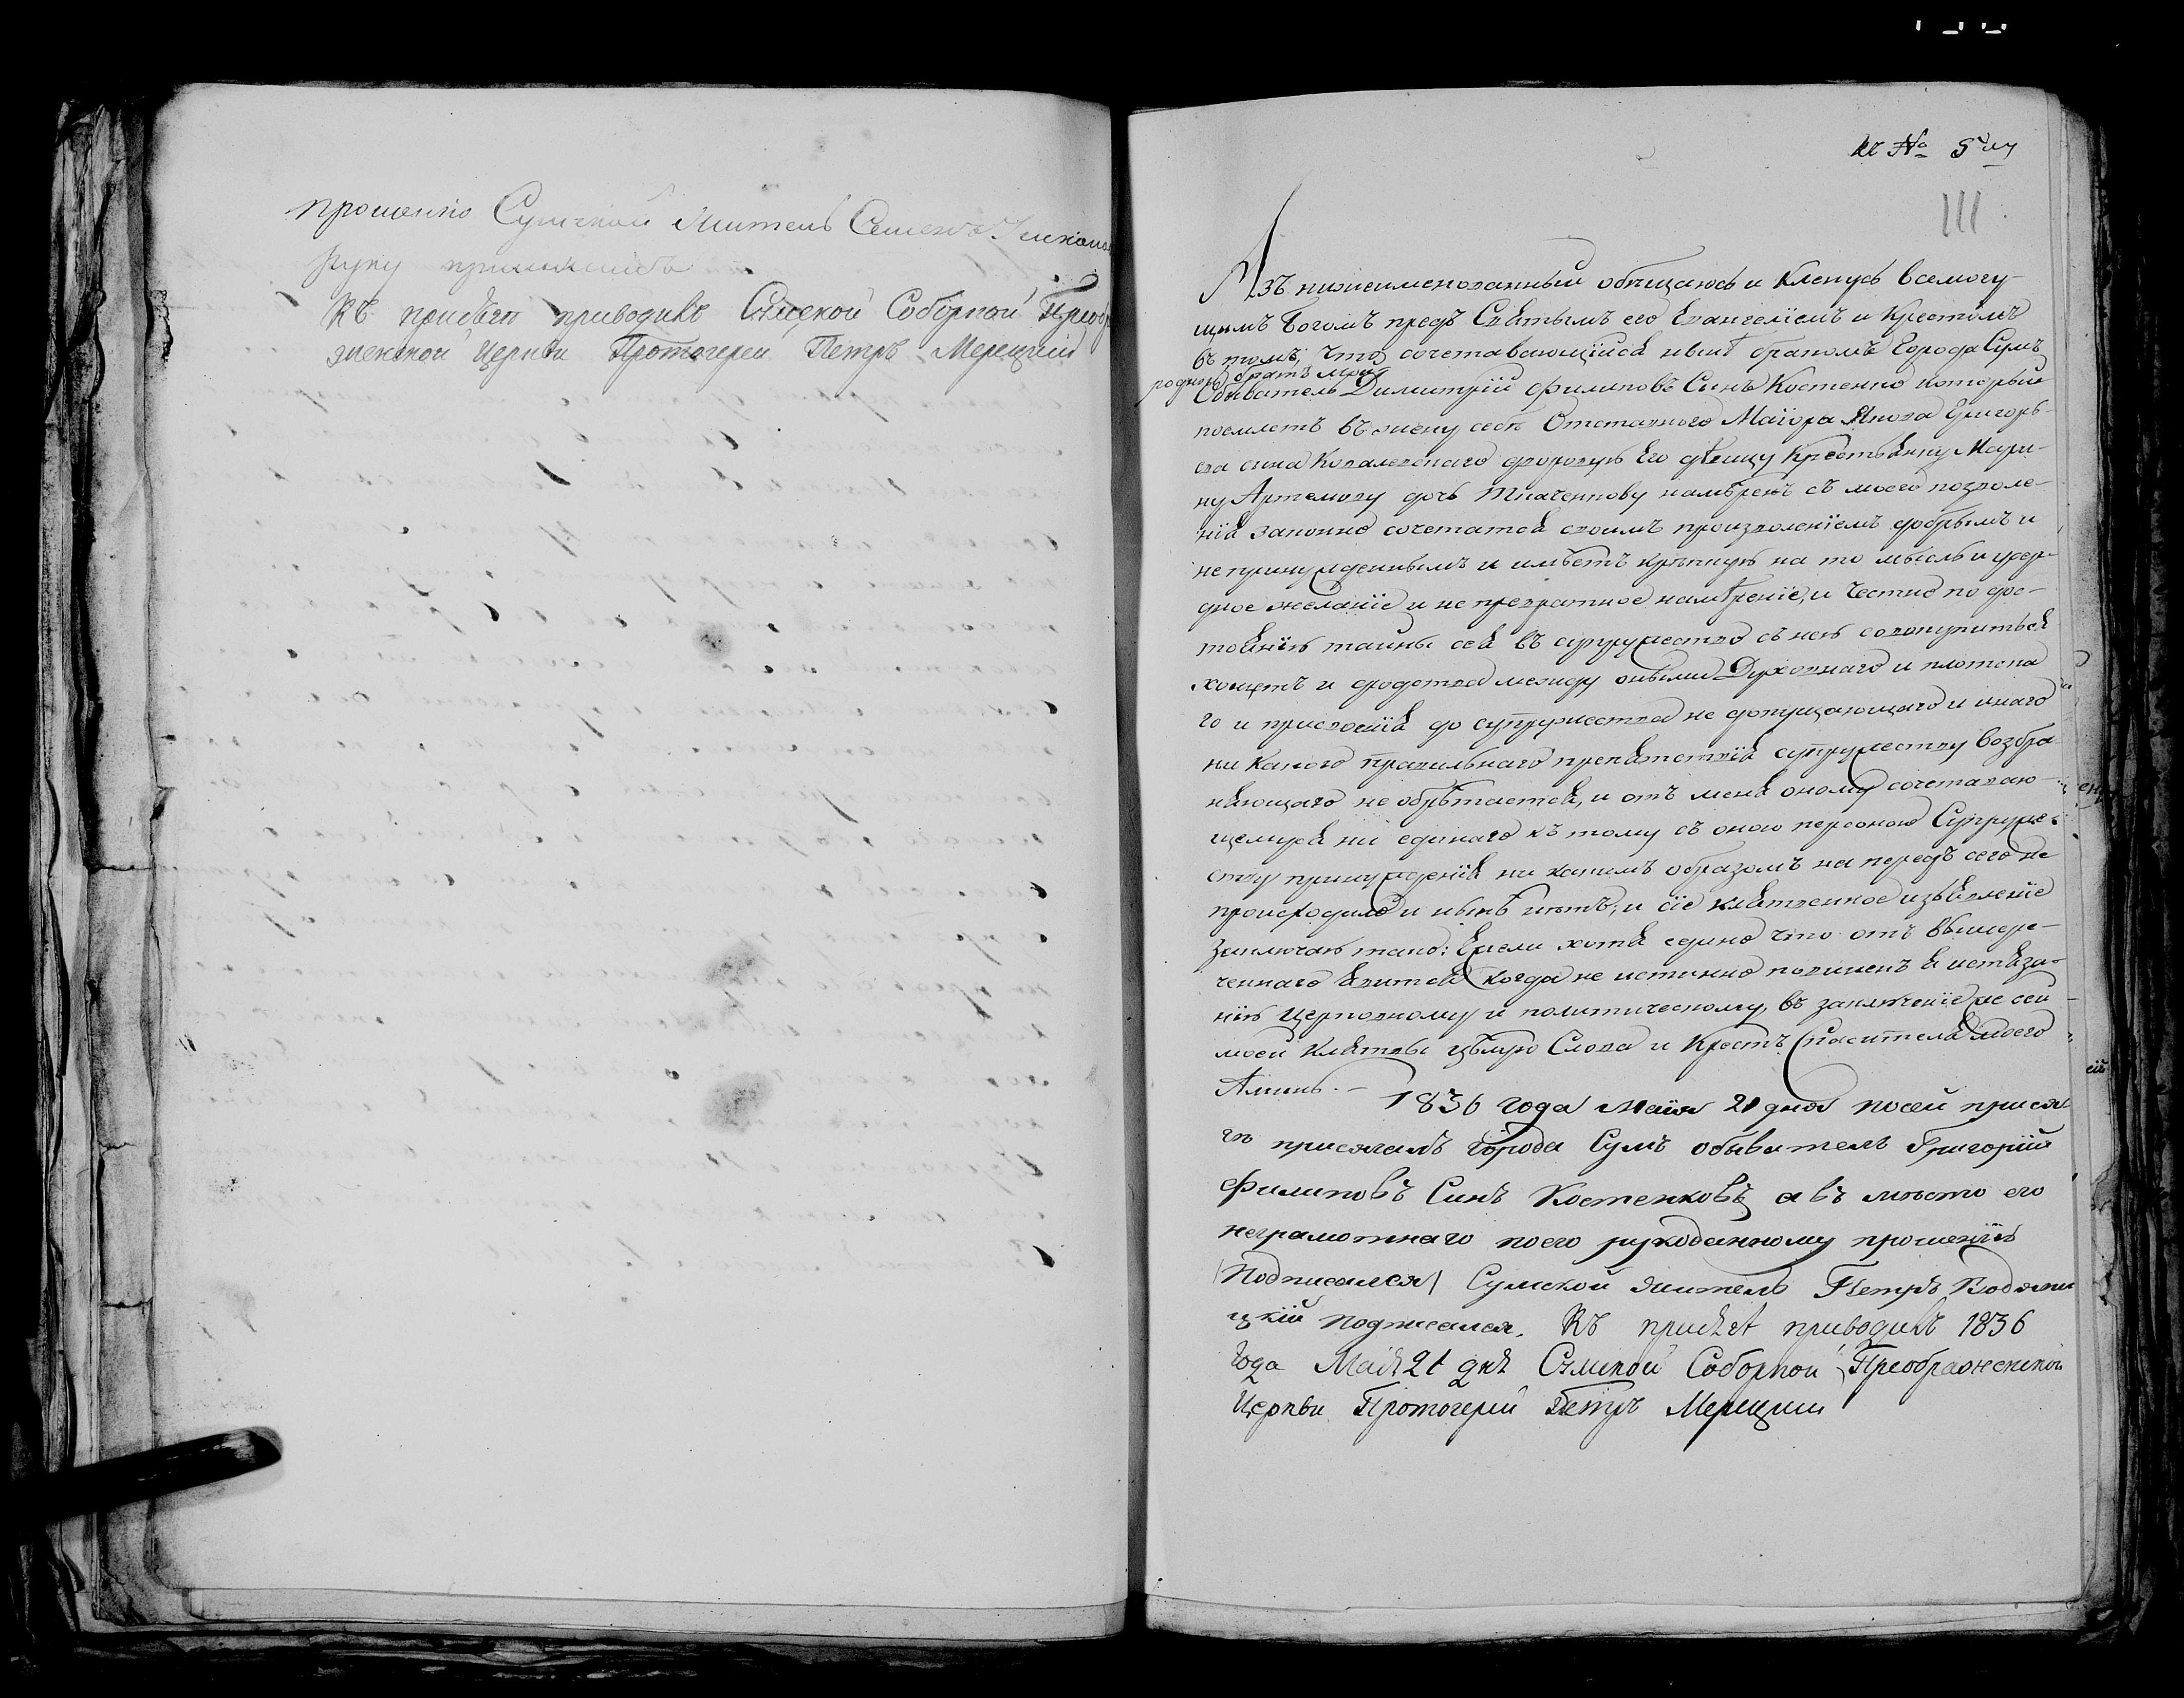 прошенію Сумской житель Семенъ
руку приложилъ
Къ присягѣ приводилъ Сумской Соборной Преобр
женской Церкви Протоіерей Петръ Мерецкій
къ № 5му
111
Азъ нижеименованный обѣщаюсь и кленусь всемогу-
щимъ Богомъ предъ Святымъ его Евангеліемъ и Крестомъ
въ томъ, что сочетавающійся нынѣ бракомъ города Сумъ
родной братъ мой
Обыватель Димитрій Филиповъ Сынъ Костенко который
поемлетъ въ жену себѣ Отставного Маіора Якова Григорь-
ева сына Ковалевскаго дворовую Его дѣвицу Крестьянку Мари-
ну Артемову дочь Ткаченкову намѣренъ съ моего позволе-
нія законно сочетатся своимъ произволеніемъ добрымъ и
непринужденнымъ и имѣетъ крѣпкую на то мысль и усер-
дное желаніе и не превратное намѣреніе, и честно по дос-
тоянію тайны сея въ супружество съ нею совокупиться
хощетъ и сродства между оными Духовнаго и плотска
го и присвоенія до супружества не допущающаго и инаго
ни какого правильнаго препятствія супружеству возбра
няющаго не обрѣтается, и отъ меня оному сочетаваю-
щемуся ни единаго къ тому съ оною персоною Супруже-
ству принужденія ни какимъ образомъ на передъ сего не
происходило и нынѣ нѣтъ, и сіе клятвенное изъявленіе
заключаю тако: Ежели хотя едино что отъ вышере-
ченнаго явится когда не истинно повиненъ я истяза-
нію церковному и политическому, въ заключеніе же сей
моей клятвы цѣлую Слова и Крестъ Спасителя моего
Аминь. —
1836 года маія 21 дня по сей прися-
гѣ присягалъ города Сумъ обыватель Григорій
Филиповъ Синъ Костенковъ а въ мѣсто его
неграмотнаго по его рукоданному прошенію
Подписался Сумской житель Петръ Водяни
цкій подписался. Къ присягѣ приводилъ 1836
года Маія 21 дня Сумской Соборной Преображенской
Церкви Протоіерей Петръ Мерецкій